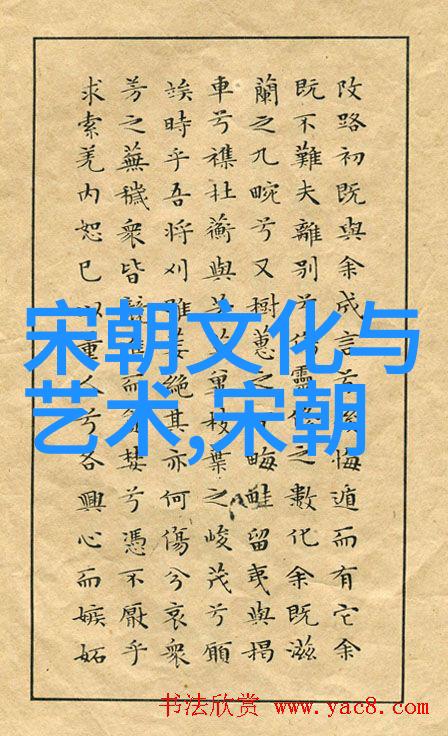 攺路初既與余成言兮悔遁而有它余
既不難夫離別兮傷靈之數化余既滋
蘭之九畹兮又樹蕙之畮畦留夷與揭
車兮襍杜蘅與芳枝葉之峻茂兮願
竢時乎吾將刈雖萎絕其亦何傷兮哀衆
芳之蕪穢衆皆而婪兮憑不厭乎
求索羌內恕已以量人兮各興心而嫉妬
宋朝文化与
艺术,宋朝
书法欣赏 www.yac8.com